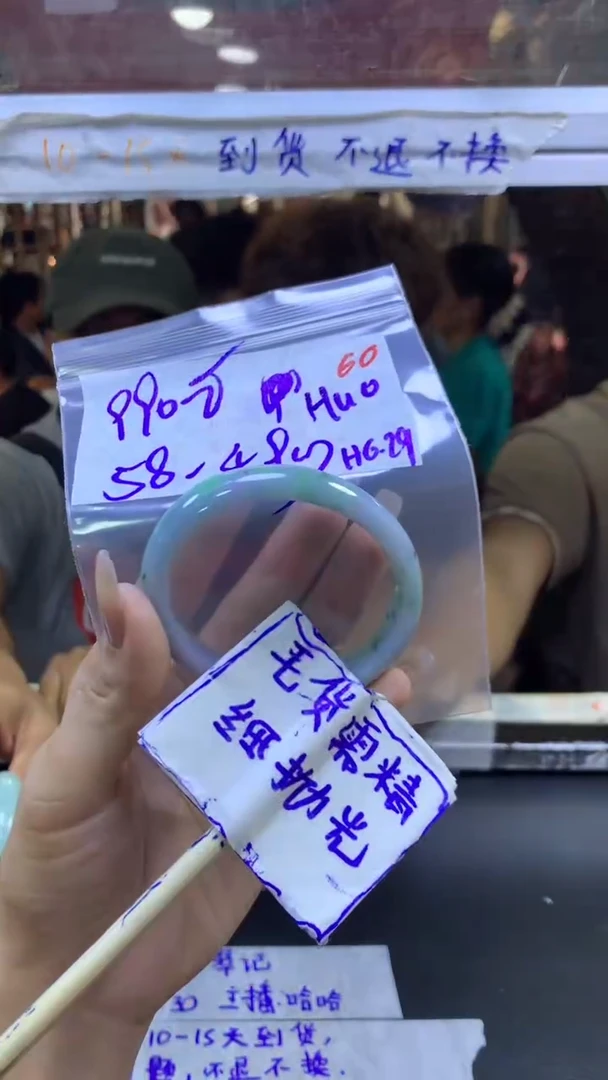 10-15天 到货 不退不换
60
990万 Huo
58- HG-29
毛货需精
细抛光
琴记
30 主播:哈哈
10-15天到货,
题,不退不换.